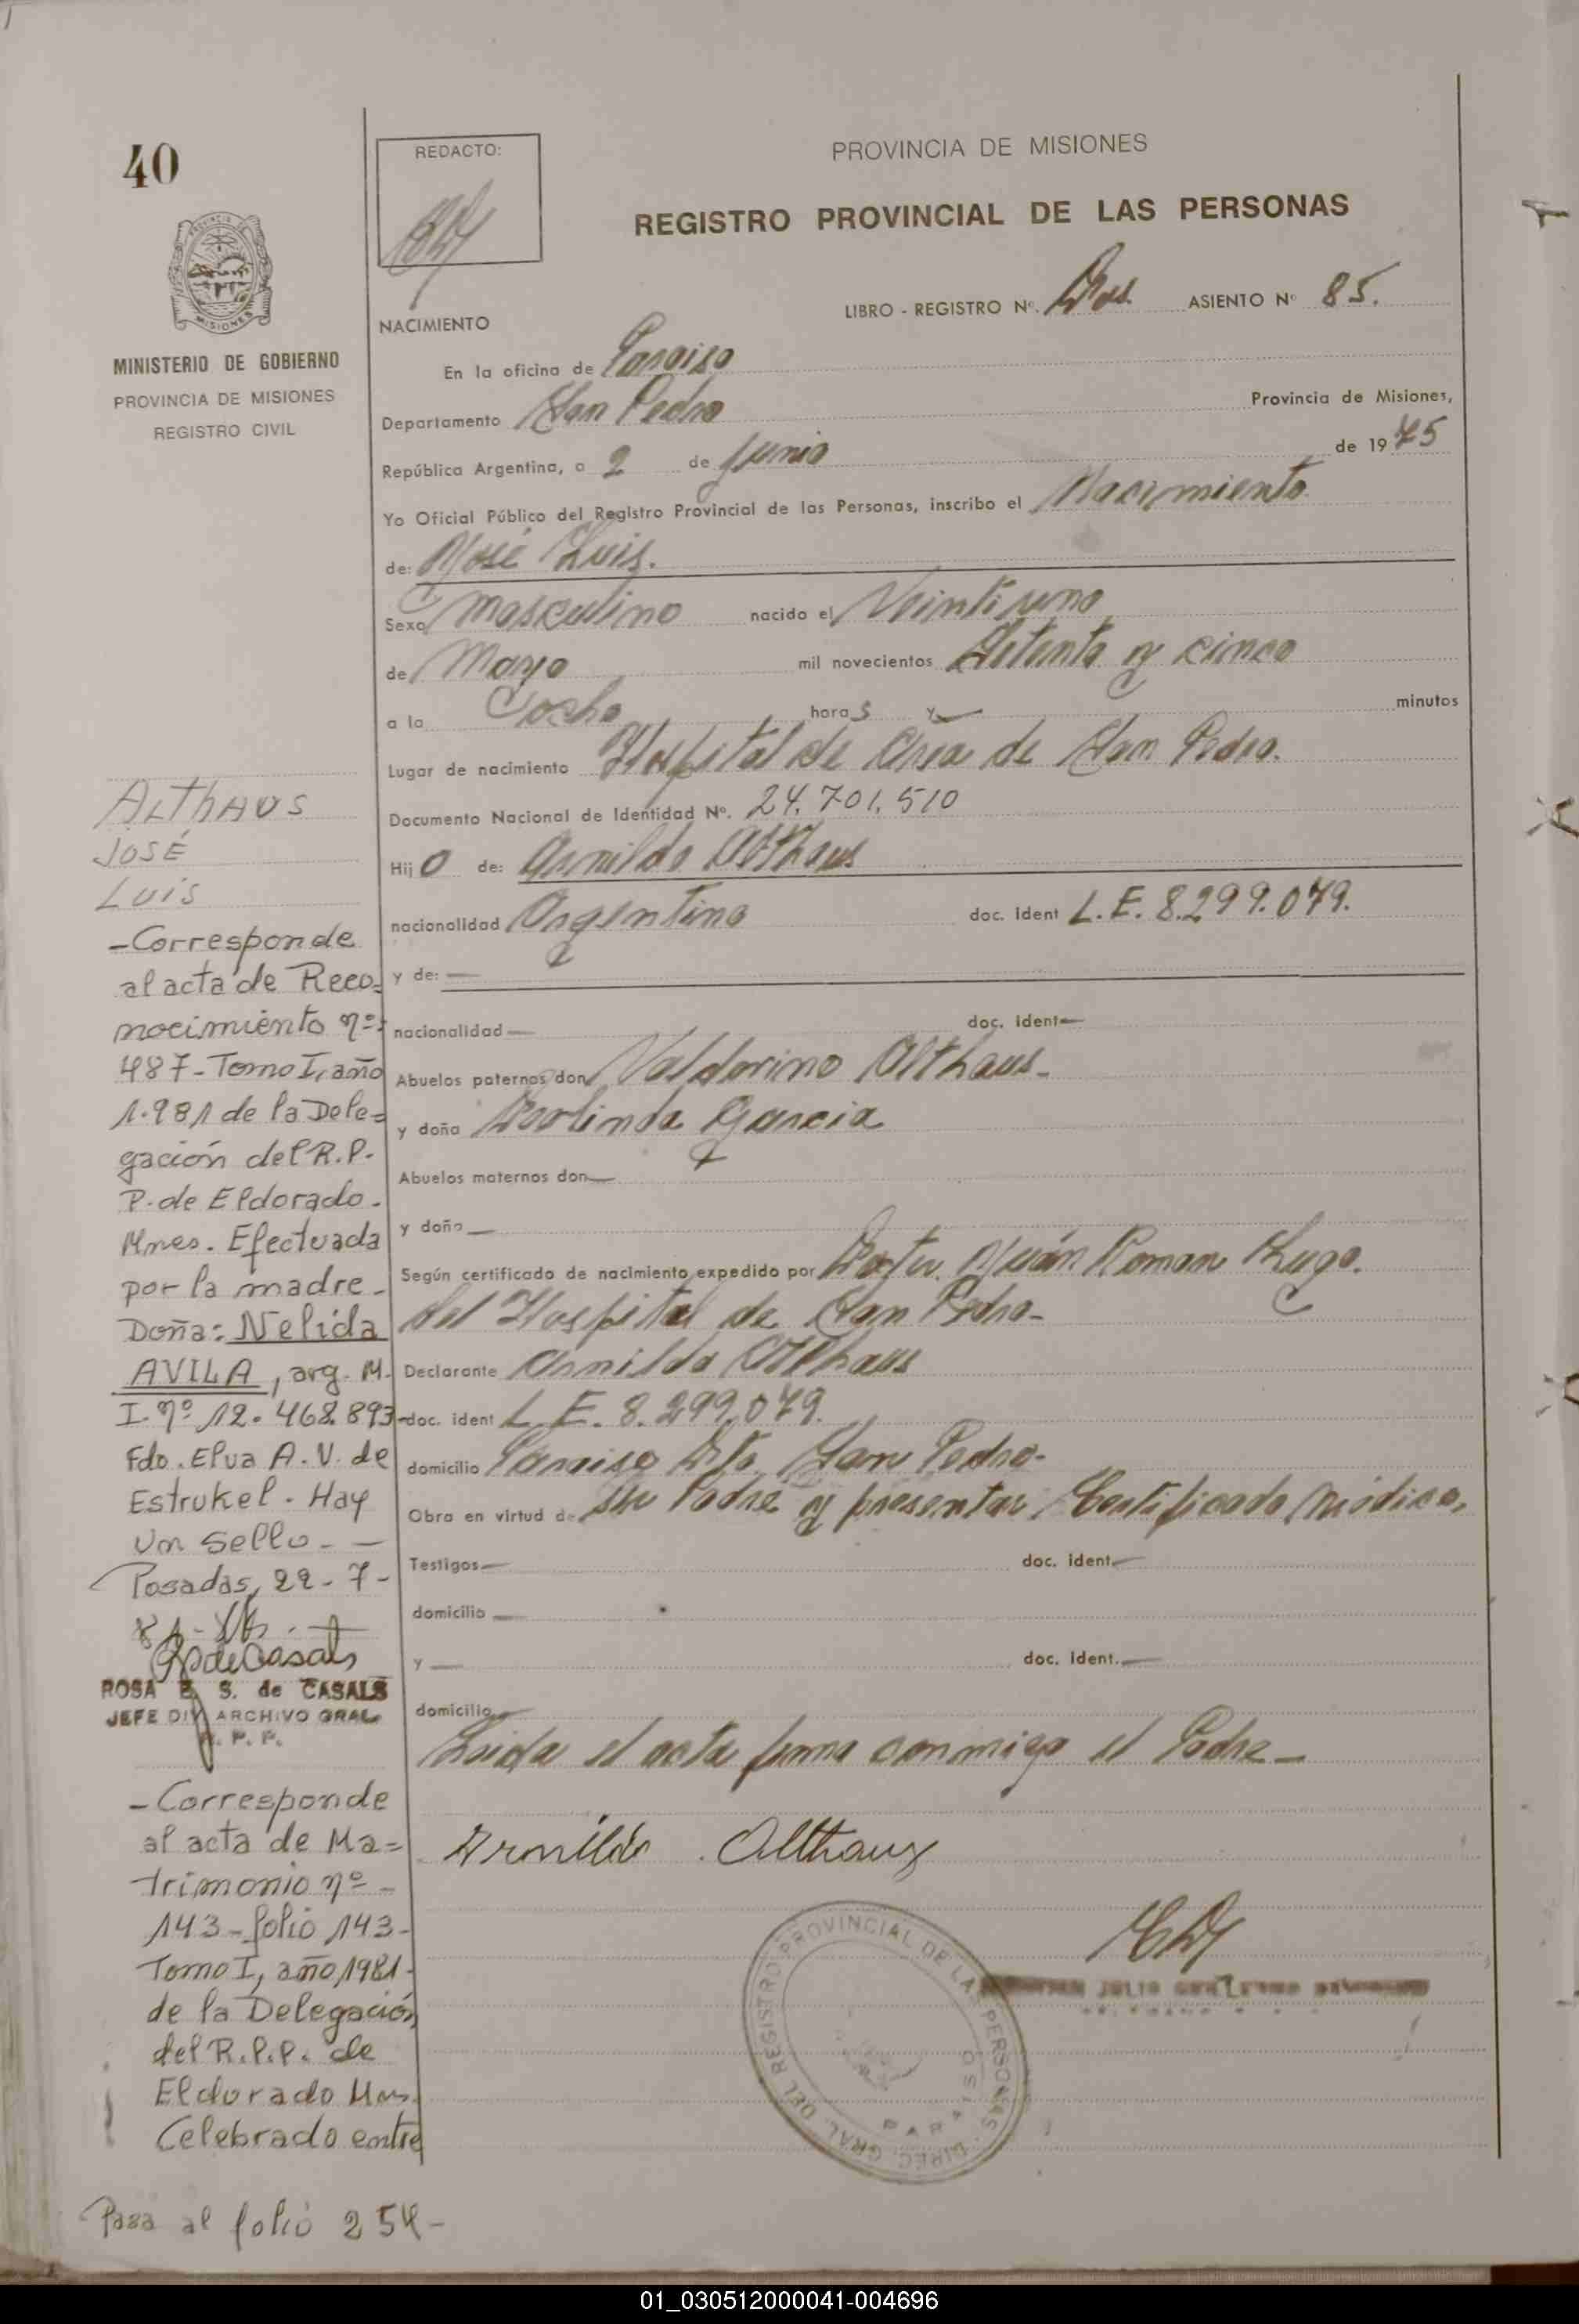 40
MINISTERIO DE GOBIERNO
PROVINCIA DE MISIONES
REGISTRO CIVIL
REDACTO:
PROVINCIA DE MISIONES
REGISTRO PROVINCIAL DE LAS PERSONAS
LIBRO - REGISTRO Nº. Dos. ASIENTO Nº 85.
NACIMIENTO
En la oficina de Paraiso
Departamento San Pedro Provincia de Misiones,
República Argentina, a 2 de Junio de 1975
Yo Oficial Público del Registro Provincial de las Personas, inscribo el Nacimiento
de: José Luis.
Sexo Masculino nacido el Veintiuno
de Mayo mil novecientos Setenta y cinco
a la ocho horas y — minutos
Lugar de nacimiento Hospital de Area de San Pedro.
Documento Nacional de Identidad Nº. 24.701.510
Hijo de: Arnildo Althaus
nacionalidad Argentino doc. ident L.E. 8.299.079.
y de: —
nacionalidad — doc. ident —
Abuelos paternos don Valdorino Althaus-
y doña Dorlinda Garcia
Abuelos maternos don —
y doña —
Según certificado de nacimiento expedido por Doctor Juán Roman Lugo.
del Hospital de San Pedro-
Declarante Arnildo Althaus
doc. ident L.E. 8.299.079.
domicilio Paraiso Dto. San Pedro-
Obra en virtud de ser Padre y presentar Certificado Médico,
Testigos — doc. ident. —
domicilio —
y — doc. ident. —
domicilio —
Leida el acta firma conmigo el Padre-
Arnildo Althaus
DIREC. GRAL. DEL REGISTRO PROVINCIAL DE LAS PERSONAS
PARAISO
ALTHAUS
JOSÉ
LUIS
-Corresponde
al acta de Reco=
nocimiento nº:
487- Tomo I, año
1.981 de la Dele=
gación del R.P.
P. de Eldorado.
Mnes. Efectuada
por la madre-
Doña: Nelida
AVILA, arg. M.
I. nº 12.468.893-
Fdo. Elva A. V. de
Estrukel. Hay
un sello. —
Posadas, 22-7-
81-
ROSA E. S. de CASALS
JEFE DIV. ARCHIVO GRAL.
R. P. P.
-Corresponde
al acta de Ma=
trimonio nº-
143-folio 143-
Tomo I, año 1981-
de la Delegación
del R.P.P. de
Eldorado Mns.
Celebrado entre
Pasa al folio 254-
01_030512000041-004696